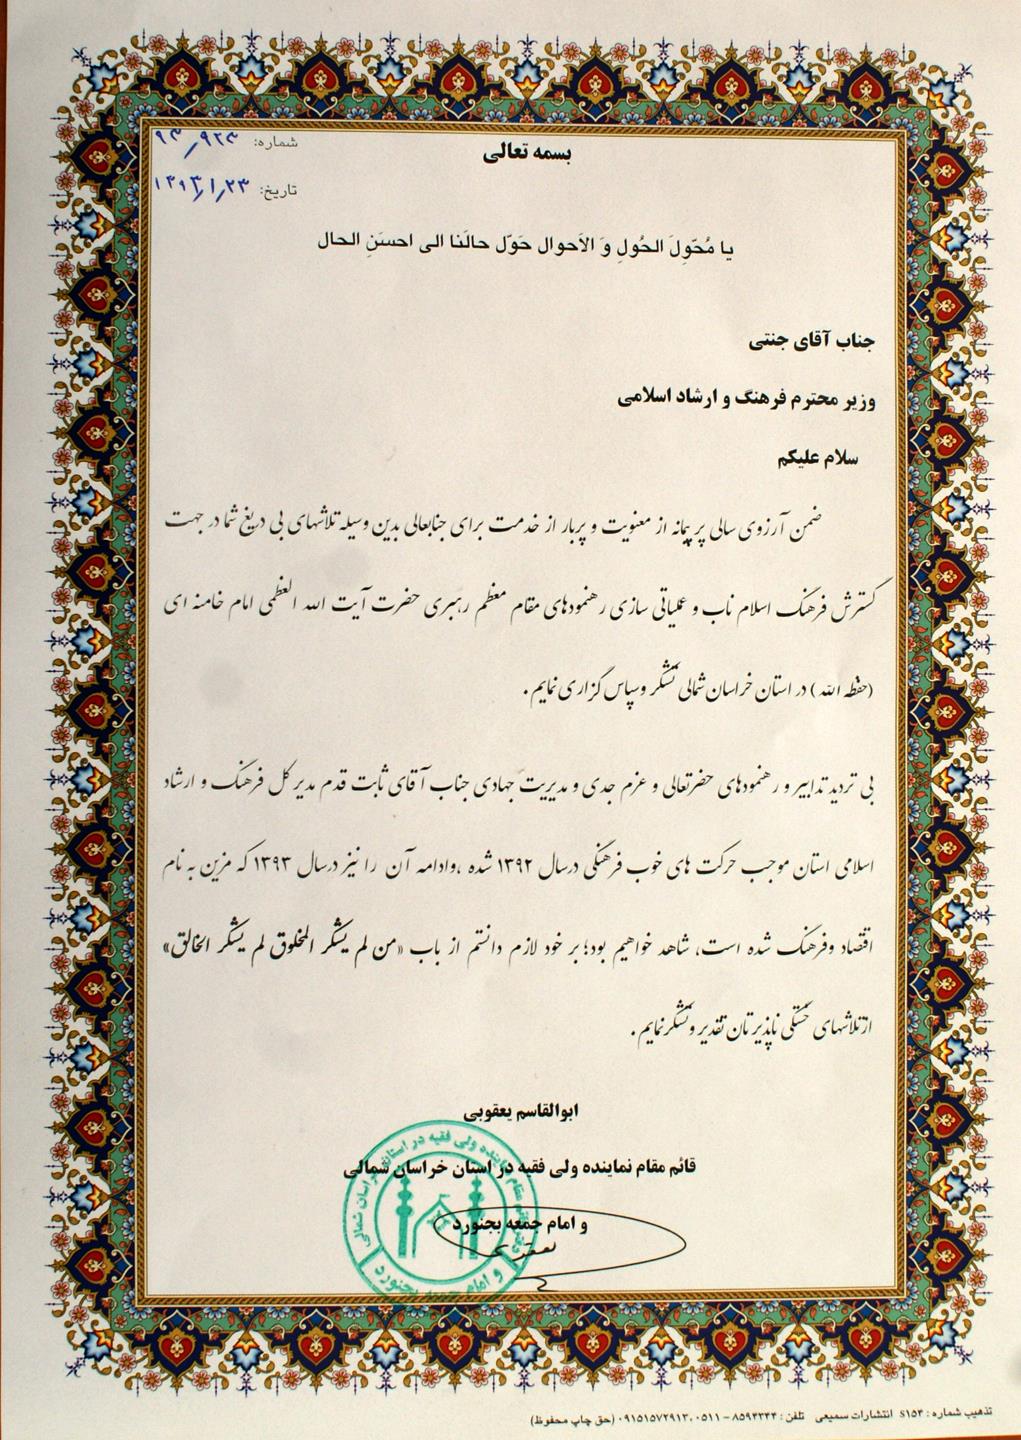 بسمه تعالی
شماره: ۹۳/۹۲۳
تاریخ: ۱۳۹۳/۱/۲۳
یا مُحَوِّلَ الحُولِ وَ الاَحوال حَوِّل حالَنا الی احسَنِ الحال
جناب آقای جنتی
وزیر محترم فرهنگ و ارشاد اسلامی
سلام علیکم
ضمن آرزوی سالی پر پیمانه از معنویت و پربار از خدمت برای جنابعالی بدین وسیله تلاشهای بی دریغ شما در جهت
گسترش فرهنگ اسلام ناب و عملیاتی سازی رهنمودهای مقام معظم رهبری حضرت آیت الله العظمی امام خامنه ای
(حفظه الله) در استان خراسان شمالی تشکر وسپاس گزاری نمایم.
بی تردید تدابیر و رهنمودهای حضرتعالی و عزم جدی و مدیریت جهادی جناب آقای ثابت قدم مدیر کل فرهنگ و ارشاد
اسلامی استان موجب حرکت های خوب فرهنگی درسال ۱۳۹۲ شده ،وادامه آن را نیز درسال ۱۳۹۳ که مزین به نام
اقتصاد وفرهنگ شده است، شاهد خواهیم بود؛ بر خود لازم دانستم از باب «من لم یشکر المخلوق لم یشکر الخالق»
ازتلاشهای خستگی ناپذیرتان تقدیر وتشکرنمایم.
ابوالقاسم یعقوبی
قائم مقام نماینده ولی فقیه در استان خراسان شمالی
و امام جمعه بجنورد
مقام نماینده ولی فقیه در استان خراسان شمالی
و امام جمعه بجنورد
تذهیب شماره: S۱۵۴ انتشارات سمیعی تلفن: ۸۵۹۴۳۴۴-۰۵۱۱،۰۹۱۵۱۵۷۲۹۱۳ (حق چاپ محفوظ)